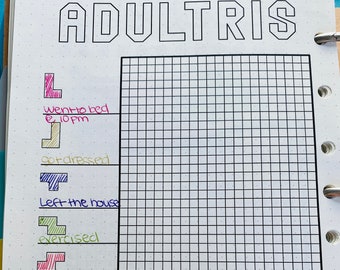 ADULTRIS
went to bed
@ 10pm
Got dressed
Left the house
exercised